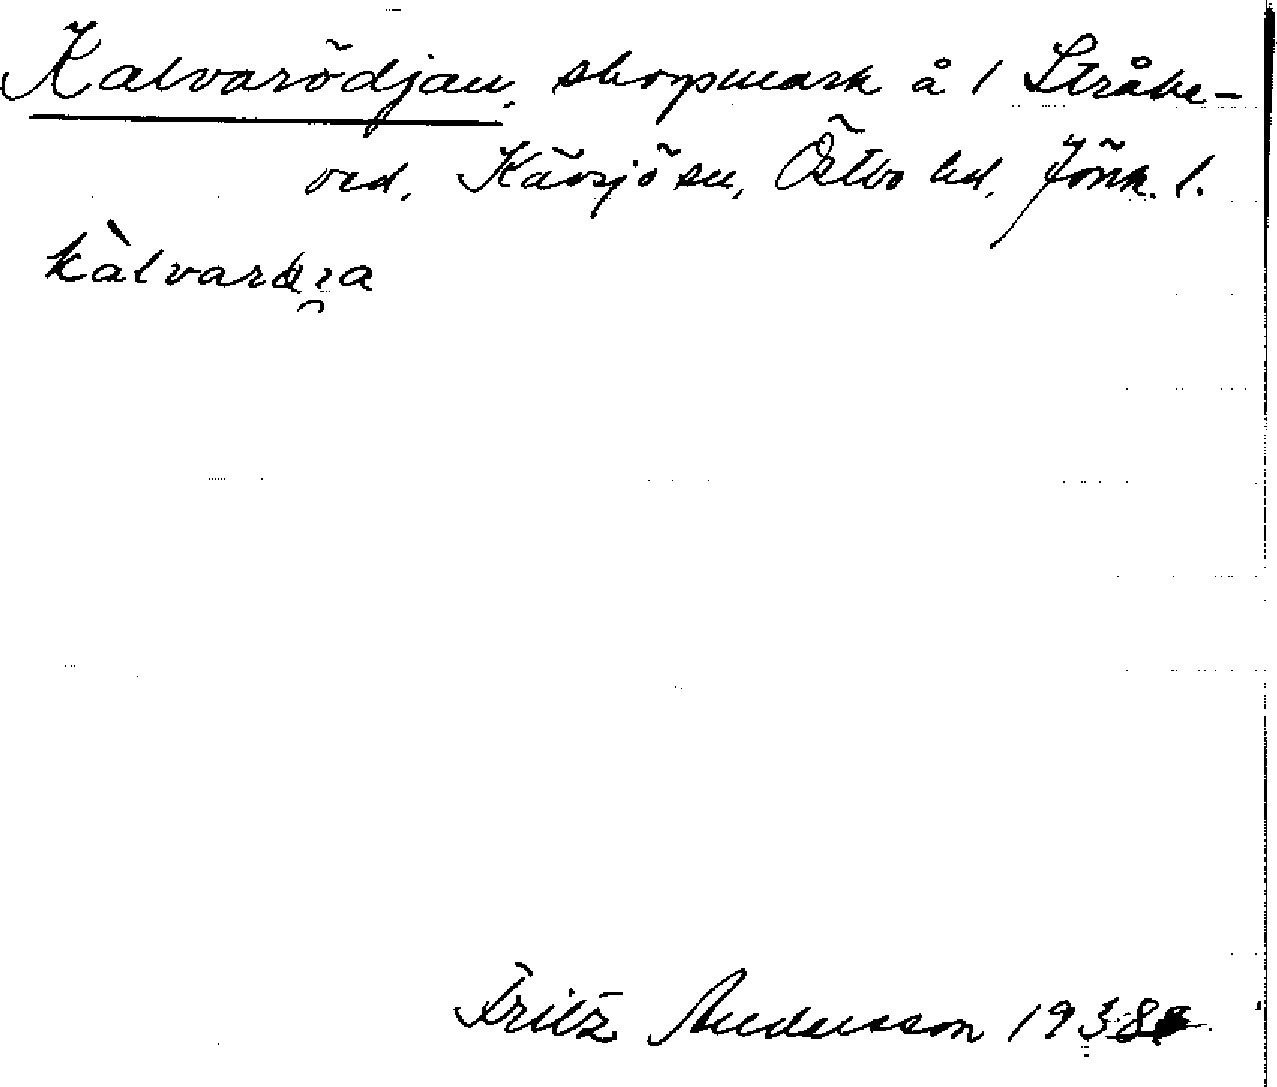 Kalvarödjan, skogsmark å 1 Stråke-
ved, Kävsjö sn, Östbo hd, Jönk. l.
Fritz Andersson 1938